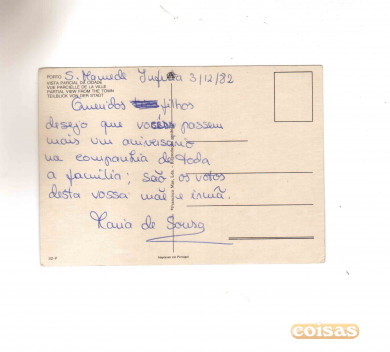 PORTO
VISTA PARCIAL DA CIDADE
VUE PARCIELLE DE LA VILLE
PARTIAL VIEW FROM THE TOWN
TEILBLICK VON DER STADT
S. Mamede Infesta 3/12/82
Queridos filhos
desejo que vocês passem
mais um aniversário
na companhia de toda
a família; são os votos
desta vossa mãe e irmã.
Maria de Sousa
coisas